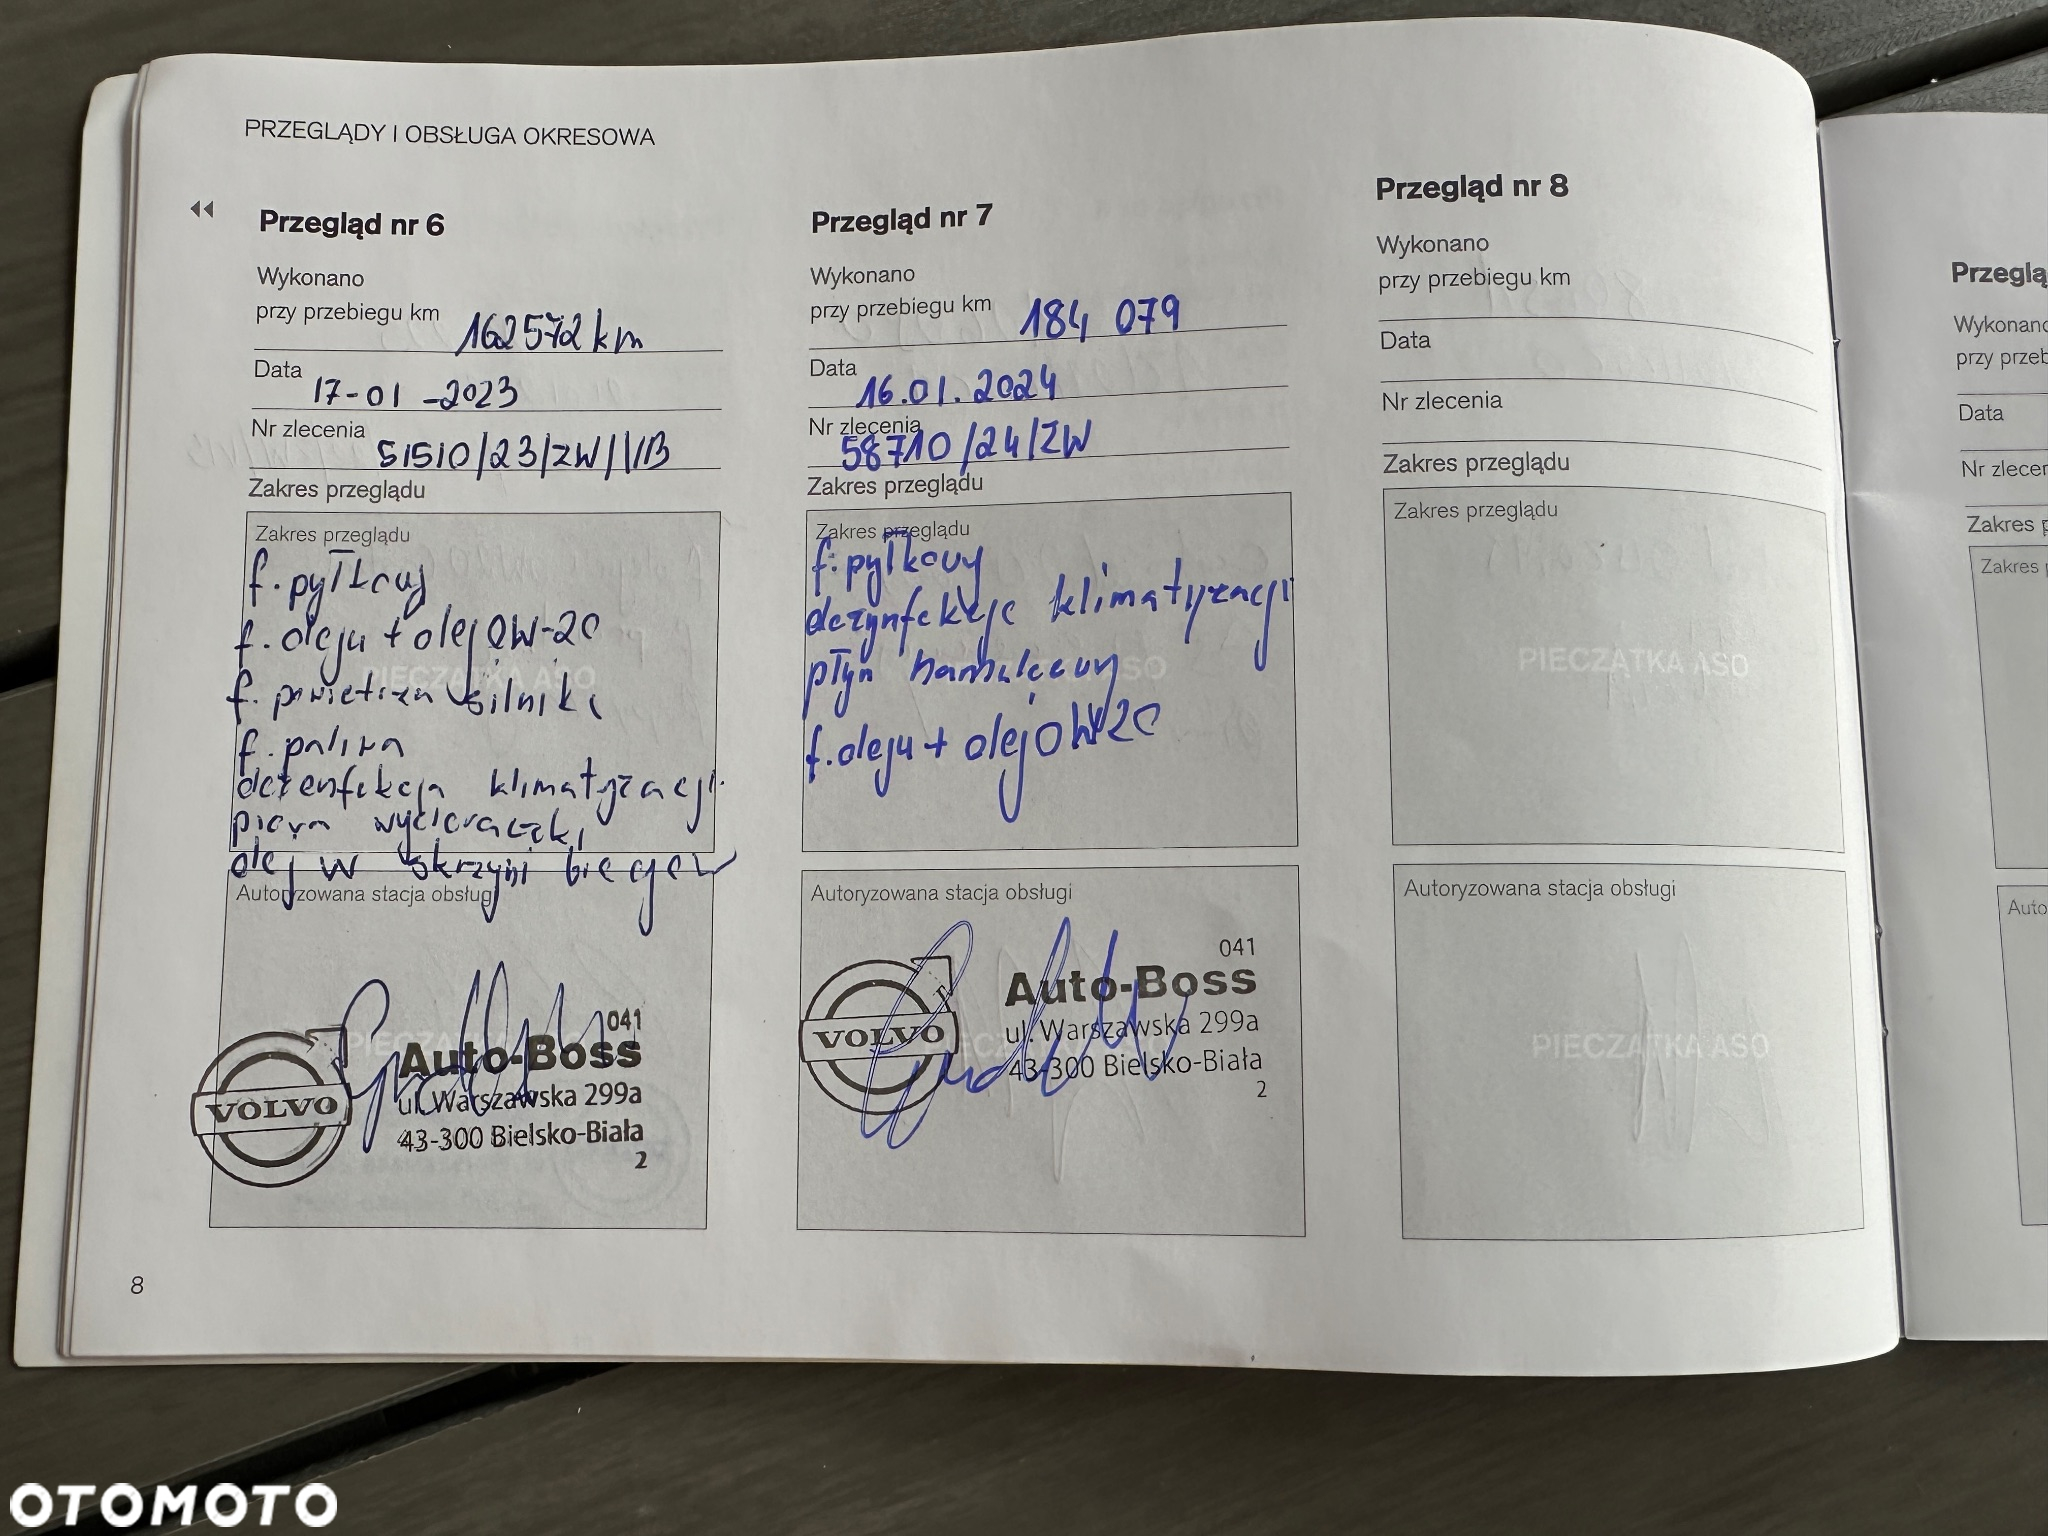 PRZEGLĄDY I OBSŁUGA OKRESOWA
Przegląd nr 6
Wykonano
przy przebiegu km 162572 km
Data 17-01-2023
Nr zlecenia 51510/23/ZW/
Zakres przeglądu
Zakres przeglądu
f. pyłkowy
f. oleju + olej 0W-20
f. powietrza silnika
f. paliwa
dezenfekcja klimatyzacji
pióra wycieraczki
olej w skrzyni biegów
Autoryzowana stacja obsługi
PIECZĄTKA ASO
041
Auto-Boss
VOLVO
ul. Warszawska 299a
43-300 Bielsko-Biała
2
Przegląd nr 7
Wykonano
przy przebiegu km 184 079
Data 16.01.2024
Nr zlecenia 58710/24/ZW
Zakres przeglądu
Zakres przeglądu
f. pyłkowy
dezynfekcje klimatyzacji
płyn hamulcowy
f. oleju + olej 0W20
Autoryzowana stacja obsługi
041
Auto-Boss
VOLVO
ul. Warszawska 299a
43-300 Bielsko-Biała
2
Przegląd nr 8
Wykonano
przy przebiegu km
Data
Nr zlecenia
Zakres przeglądu
Zakres przeglądu
PIECZĄTKA ASO
Autoryzowana stacja obsługi
PIECZĄTKA ASO
8
Przeglą
Wykonano
przy przeb
Data
Nr zlecen
Zakres p
Zakres p
Auto
OTOMOTO